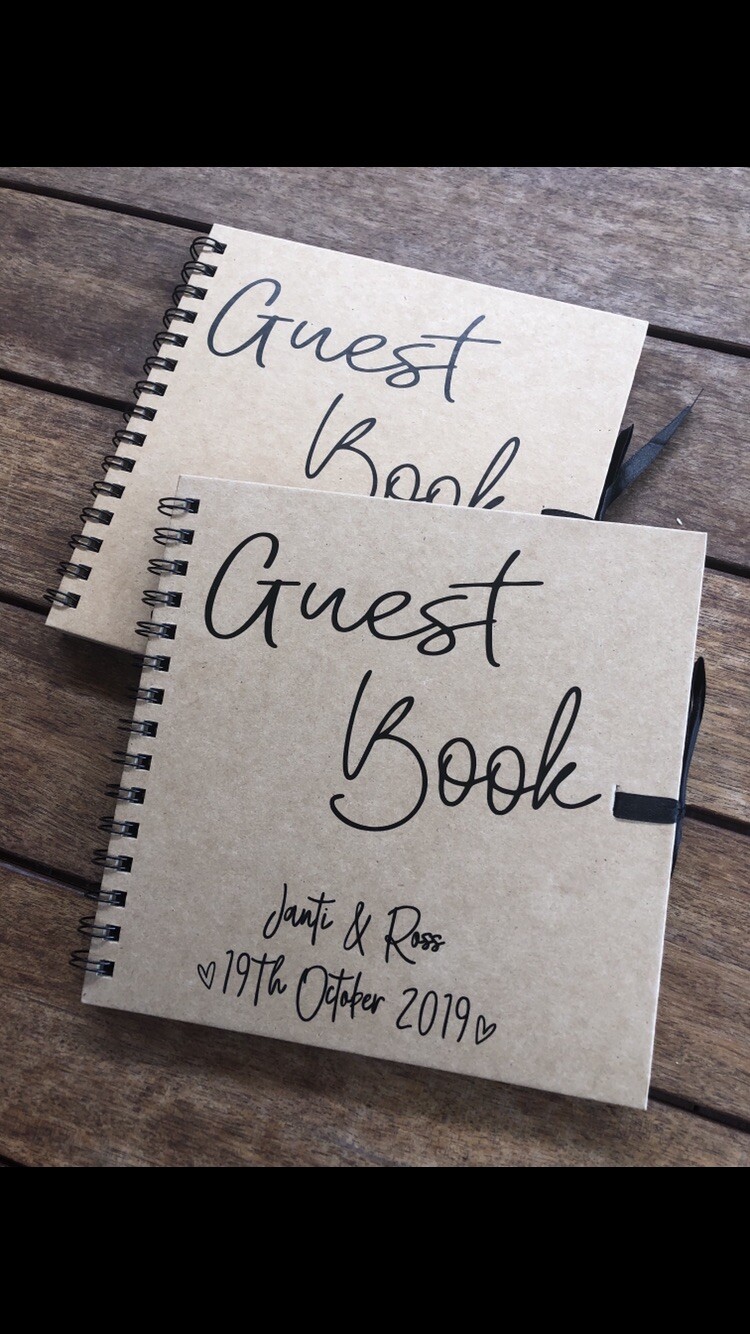 Guest
Book
Guest
Book
Janti & Ross
♡19th October 2019♡